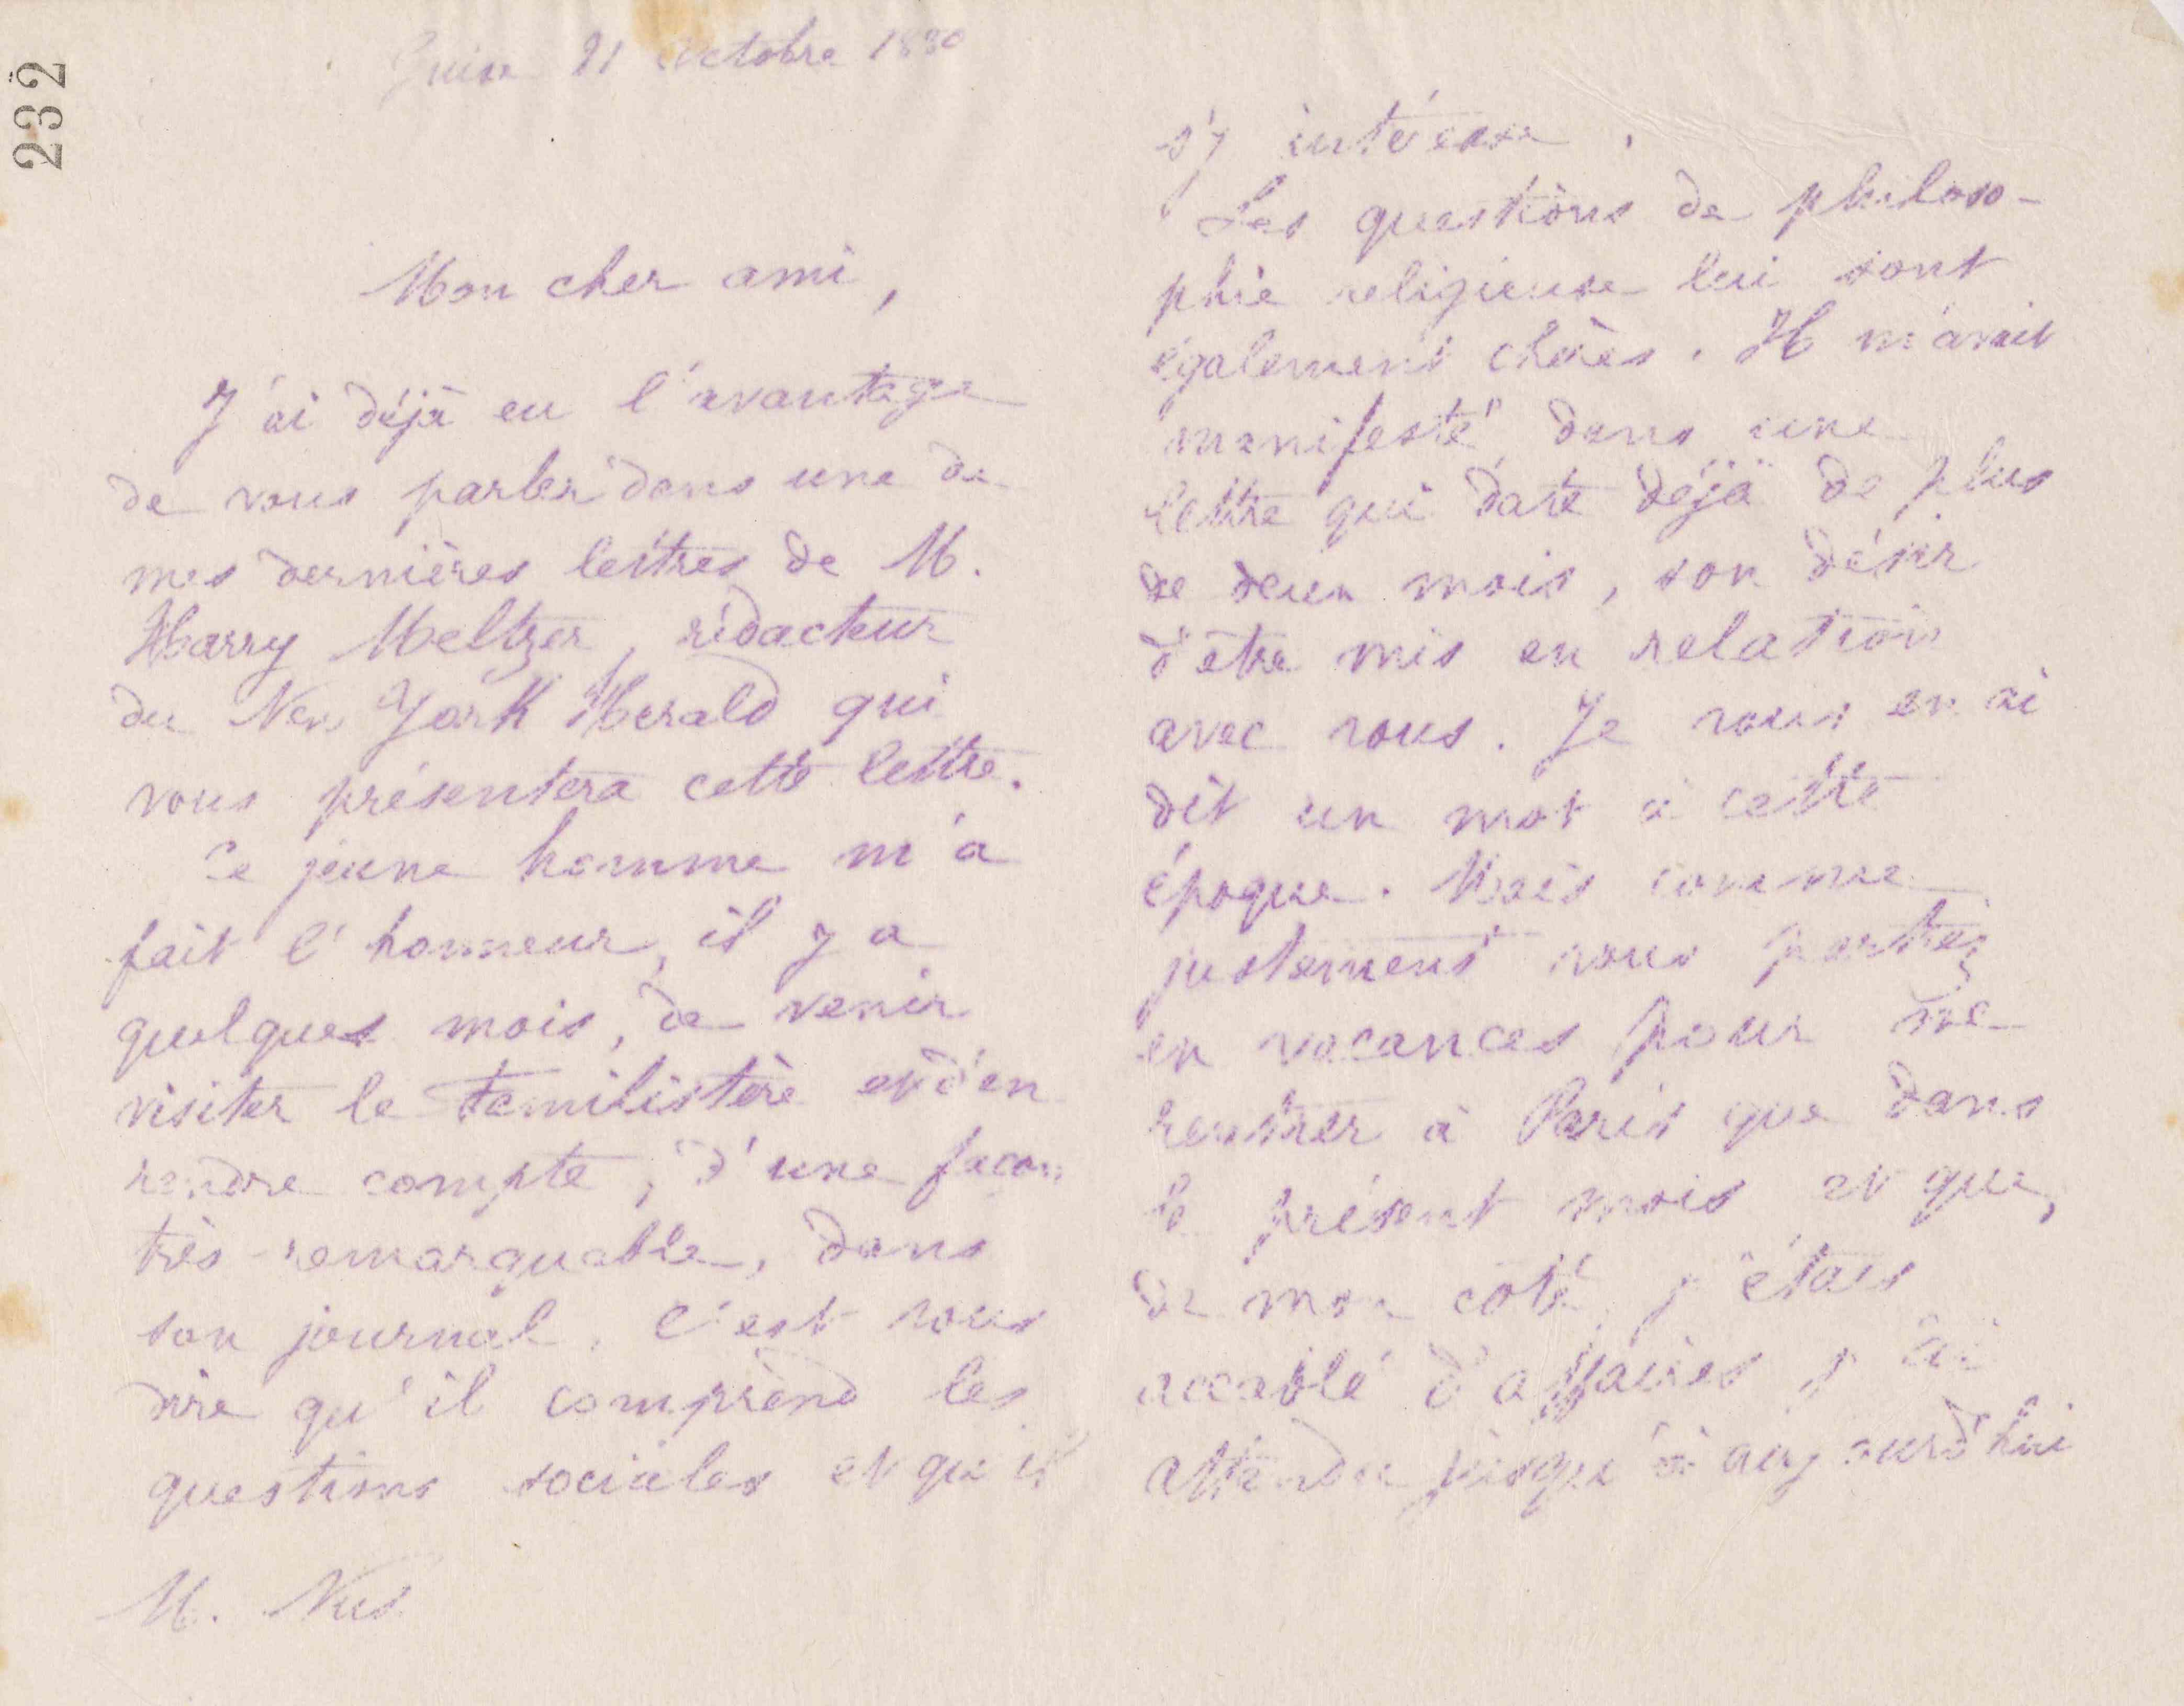 232
Guise 21 octobre 1880
Mon cher ami,
J'ai déjà eu l'avantage
de vous parler dans une de
mes dernières lettres de M.
Harry Meltzer, rédacteur
du New York Herald qui
vous présentera cette lettre.
Ce jeune homme m'a
fait l'honneur, il y a
quelques mois, de venir
visiter le Familistère et d'en
rendre compte, d'une façon
très remarquable, dans
son journal. C'est vous
dire qu'il comprend les
questions sociales et qu'il
M. Nus
s'y intéresse.
Les questions de philoso-
phie religieuse lui sont
également chères. Il m'avait
manifesté dans une
lettre qui date déjà de plus
de deux mois, son désir
d'être mis en relation
avec vous. Je vous en ai
dit un mot à cette
époque. Mais comme
justement vous partiez
en vacances pour ne
rentrer à Paris que dans
le présent mois et que,
de mon côté, j'étais
accablé d'affaires, j'ai
attendu jusqu'à aujourd'hui